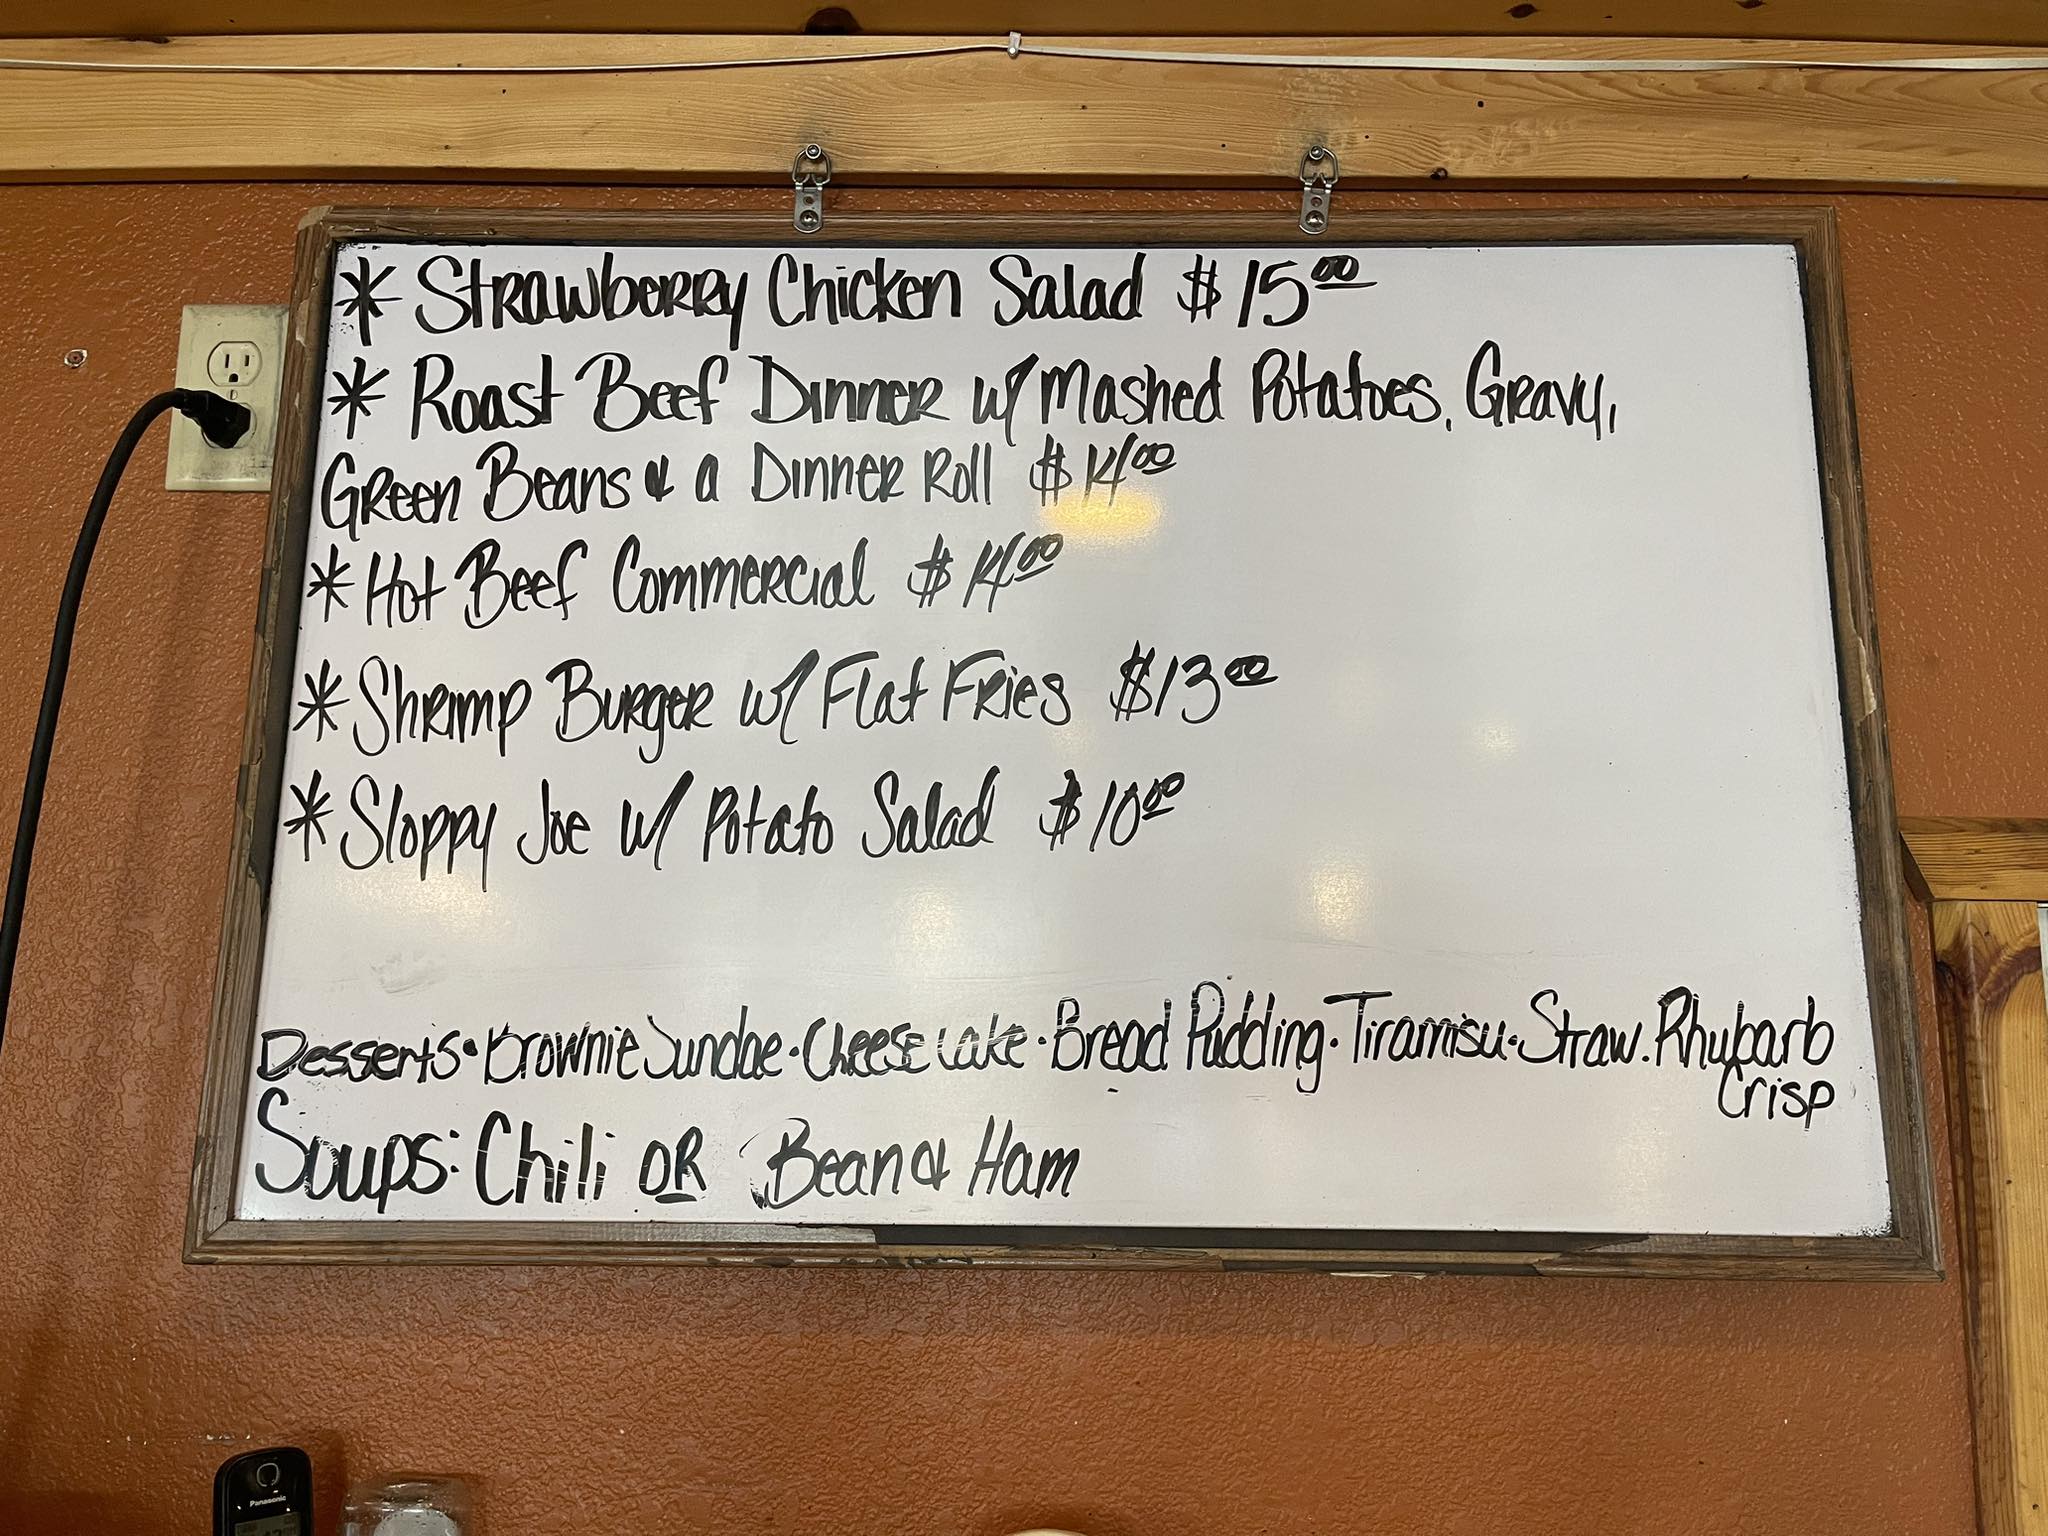 * Strawberry Chicken Salad $15.00
* Roast Beef Dinner w/ Mashed Potatoes, Gravy,
Green Beans & a Dinner Roll $14.00
* Hot Beef Commercial $14.00
* Shrimp Burger w/ Flat Fries $13.00
* Sloppy Joe w/ Potato Salad $10.00
Desserts • Brownie Sundae • Cheese Cake • Bread Pudding • Tiramisu • Straw. Rhubarb
Crisp
Soups: Chili OR Bean & Ham
Panasonic